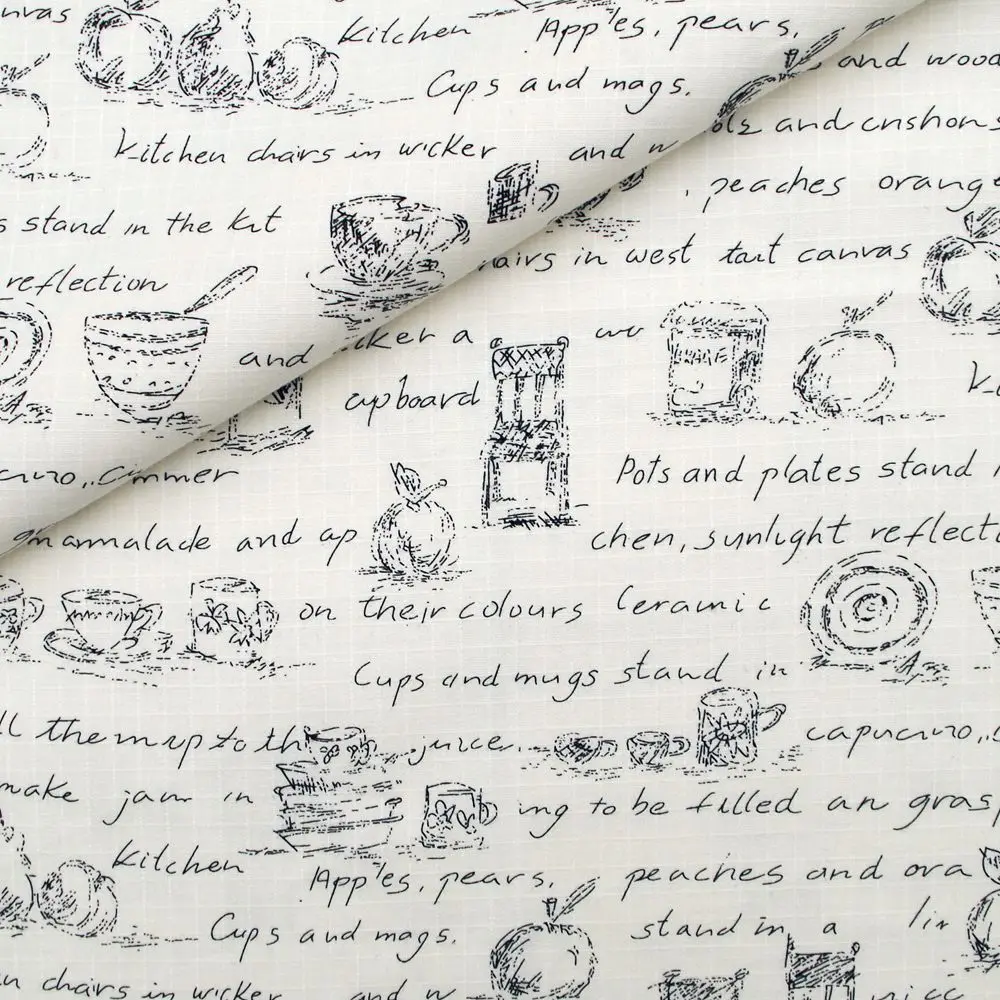 nvas
Kitchen App'es, pears,
Cups and mags. and wood
Kitchen chairs in wicker and w
ols and cushons
, peaches orange
s stand in the Kit
airs in west tart canvas
reflection
and cker a wo
cupboard
cuzo,, cmmer
Pots and plates stand
marmalade and ap
chen, sunlight reflecti
on their colours Ceramic
Cups and mugs stand in
ll them up to th juice,
capucuzo,,
make jam in ing to be filled an grasp
Kitchen
App'es, pears, peaches and ora
Cups and mags. stand in a lin
n chairs in wicker and w